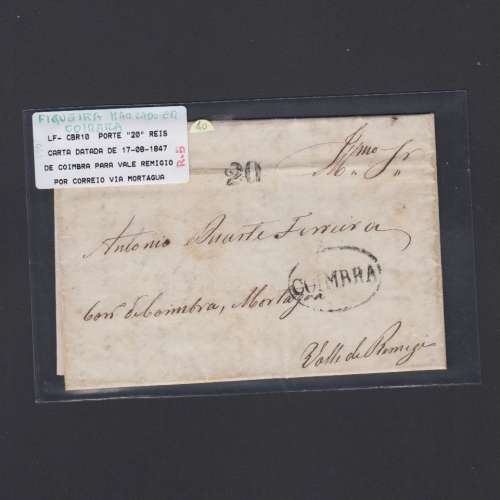 FIGUEIRA MARCADO EM
COIMBRA
LF- CBR10 PORTE "20" REIS
CARTA DATADA DE 17-08-1847
DE COIMBRA PARA VALE REMIGIO
POR CORREIO VIA MORTAGUA
R.5
20
Illmo Sr
Antonio Duarte Ferreira
COIMBRA
Coimbra, Mortagoa
Valle de Remigi